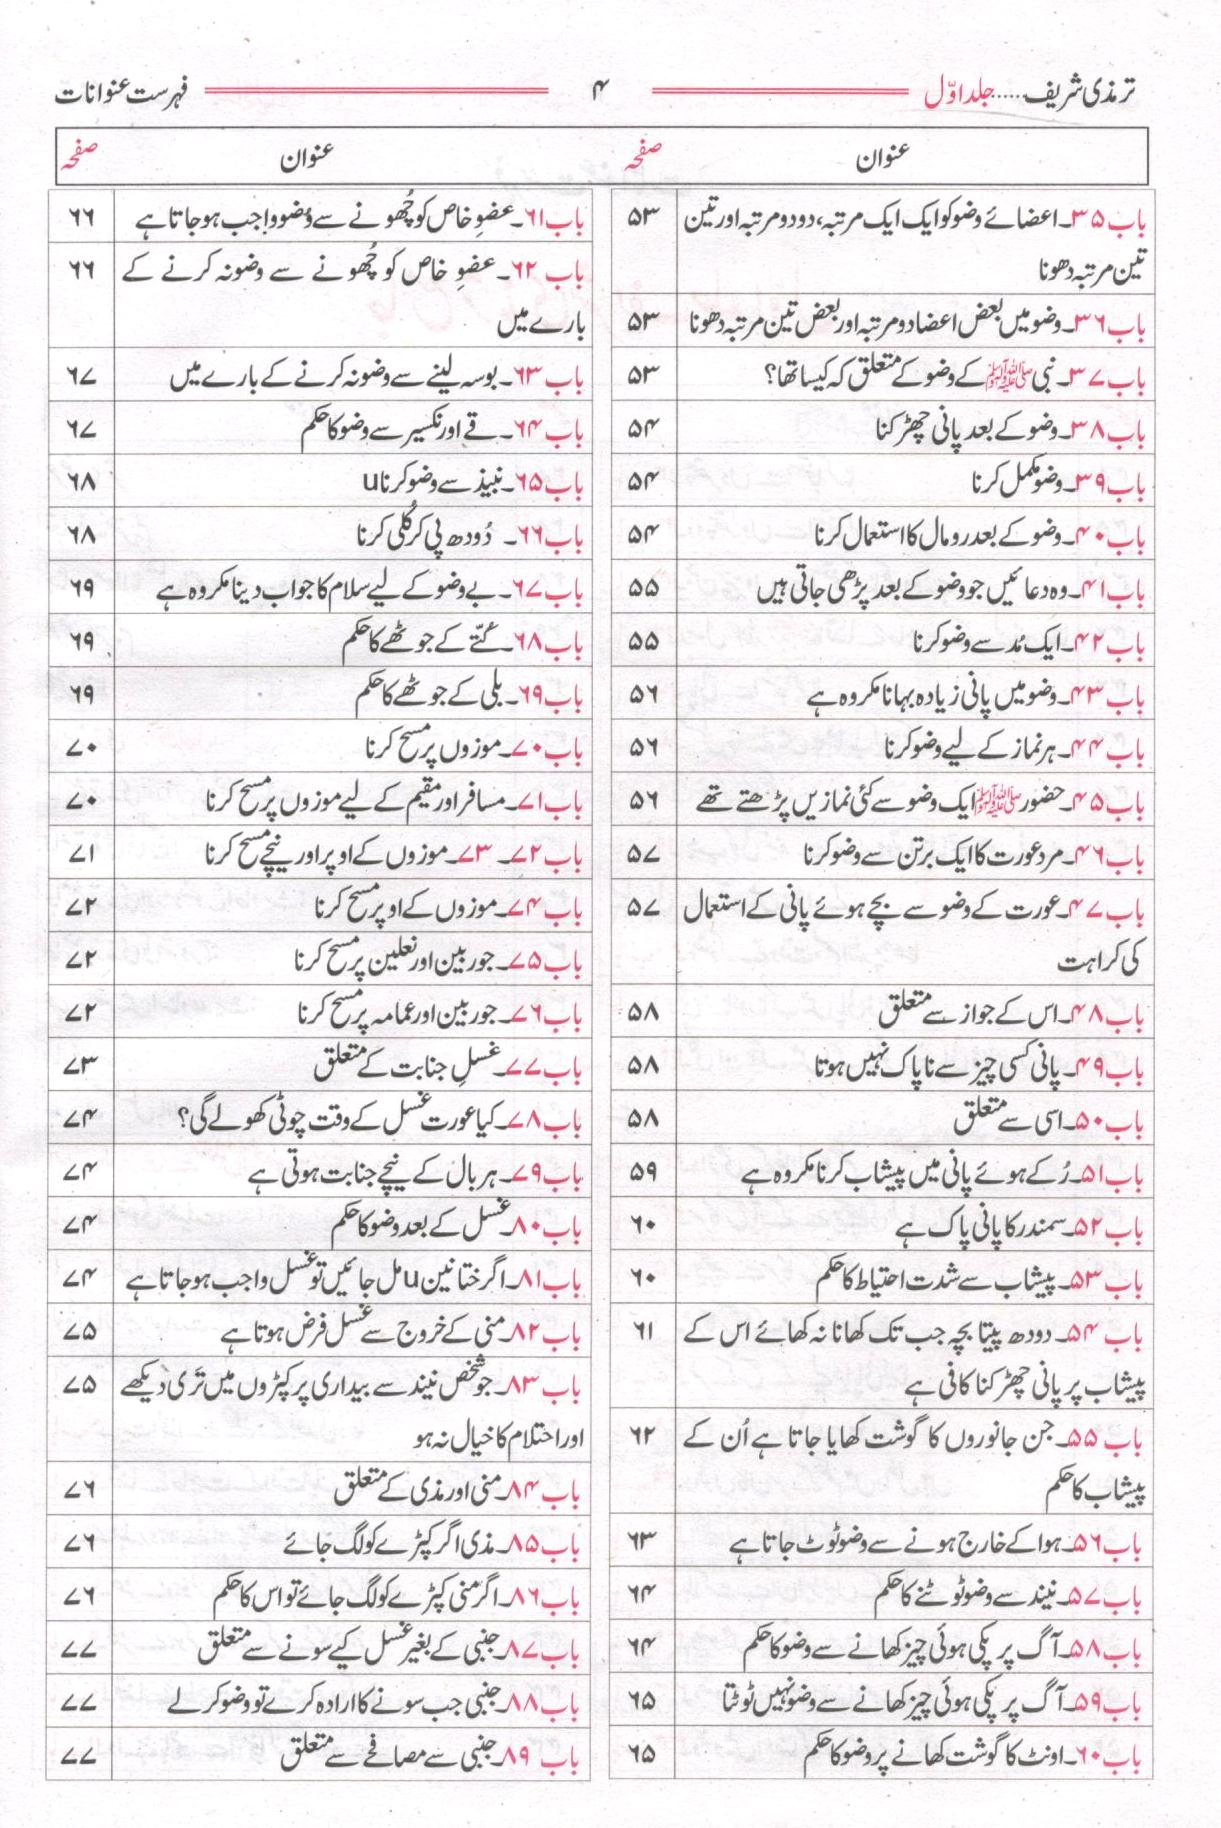 ترمذی شریف.....جلد اوّل ۴ فہرست عنوانات
عنوان صفحہ عنوان صفحہ
باب ۳۵۔ اعضائے وضو کو ایک ایک مرتبہ، دو دو مرتبہ اور تین ۵۳
تین مرتبہ دھونا
باب ۳۶۔ وضو میں بعض اعضا دو مرتبہ اور بعض تین مرتبہ دھونا ۵۳
باب ۳۷۔ نبی ﷺ کے وضو کے متعلق کہ کیسا تھا؟ ۵۳
باب ۳۸۔ وضو کے بعد پانی چھڑکنا ۵۴
باب ۳۹۔ وضو مکمل کرنا ۵۴
باب ۴۰۔ وضو کے بعد رومال کا استعمال کرنا ۵۴
باب ۴۱۔ وہ دعائیں جو وضو کے بعد پڑھی جاتی ہیں ۵۵
باب ۴۲۔ ایک مُد سے وضو کرنا ۵۵
باب ۴۳۔ وضو میں پانی زیادہ بہانا مکروہ ہے ۵۶
باب ۴۴۔ ہر نماز کے لیے وضو کرنا ۵۶
باب ۴۵۔ حضور ﷺ ایک وضو سے کئی نمازیں پڑھتے تھے ۵۶
باب ۴۶۔ مرد عورت کا ایک برتن سے وضو کرنا ۵۷
باب ۴۷۔ عورت کے وضو سے بچے ہوئے پانی کے استعمال ۵۷
کی کراہت
باب ۴۸۔ اس کے جواز سے متعلق ۵۸
باب ۴۹۔ پانی کسی چیز سے ناپاک نہیں ہوتا ۵۸
باب ۵۰۔ اسی سے متعلق ۵۸
باب ۵۱۔ رُکے ہوئے پانی میں پیشاب کرنا مکروہ ہے ۵۹
باب ۵۲۔ سمندر کا پانی پاک ہے ۶۰
باب ۵۳۔ پیشاب سے شدت احتیاط کا حکم ۶۰
باب ۵۴۔ دودھ پیتا بچہ جب تک کھانا نہ کھائے اس کے ۶۱
پیشاب پر پانی چھڑکنا کافی ہے
باب ۵۵۔ جن جانوروں کا گوشت کھایا جاتا ہے اُن کے ۶۲
پیشاب کا حکم
باب ۵۶۔ ہوا کے خارج ہونے سے وضو ٹوٹ جاتا ہے ۶۳
باب ۵۷۔ نیند سے وضو ٹوٹنے کا حکم ۶۴
باب ۵۸۔ آگ پر پکی ہوئی چیز کھانے سے وضو کا حکم ۶۴
باب ۵۹۔ آگ پر پکی ہوئی چیز کھانے سے وضو نہیں ٹوٹتا ۶۵
باب ۶۰۔ اونٹ کا گوشت کھانے پر وضو کا حکم ۶۵
باب ۶۱۔ عضوِ خاص کو چُھونے سے وُضو واجب ہو جاتا ہے ۶۶
باب ۶۲۔ عضوِ خاص کو چُھونے سے وضو نہ کرنے کے ۶۶
بارے میں
باب ۶۳۔ بوسہ لینے سے وضو نہ کرنے کے بارے میں ۶۷
باب ۶۴۔ قے اور نکسیر سے وضو کا حکم ۶۷
باب ۶۵۔ نبیذ سے وضو کرنا u ۶۸
باب ۶۶۔ دُودھ پی کر کُلی کرنا ۶۸
باب ۶۷۔ بے وضو کے لیے سلام کا جواب دینا مکروہ ہے ۶۹
باب ۶۸۔ کُتّے کے جوٹھے کا حکم ۶۹
باب ۶۹۔ بلی کے جوٹھے کا حکم ۶۹
باب ۷۰۔ موزوں پر مسح کرنا ۷۰
باب ۷۱۔ مسافر اور مقیم کے لیے موزوں پر مسح کرنا ۷۰
باب ۷۲۔ ۷۳۔ موزوں کے اوپر اور نیچے مسح کرنا ۷۱
باب ۷۴۔ موزوں کے اوپر مسح کرنا ۷۲
باب ۷۵۔ جوربین اور نعلین پر مسح کرنا ۷۲
باب ۷۶۔ جوربین اور عمامہ پر مسح کرنا ۷۲
باب ۷۷۔ غسلِ جنابت کے متعلق ۷۳
باب ۷۸۔ کیا عورت غسل کے وقت چوٹی کھولے گی؟ ۷۴
باب ۷۹۔ ہر بال کے نیچے جنابت ہوتی ہے ۷۴
باب ۸۰۔ غسل کے بعد وضو کا حکم ۷۴
باب ۸۱۔ اگر ختانین u مل جائیں تو غسل واجب ہو جاتا ہے ۷۴
باب ۸۲۔ منی کے خروج سے غسل فرض ہوتا ہے ۷۵
باب ۸۳۔ جو شخص نیند سے بیداری پر کپڑوں میں تَری دیکھے ۷۵
اور احتلام کا خیال نہ ہو
باب ۸۴۔ منی اور مذی کے متعلق ۷۶
باب ۸۵۔ مذی اگر کپڑے کو لگ جائے ۷۶
باب ۸۶۔ اگر منی کپڑے کو لگ جائے تو اس کا حکم ۷۶
باب ۸۷۔ جنبی کے بغیر غسل کیے سونے سے متعلق ۷۷
باب ۸۸۔ جنبی جب سونے کا ارادہ کرے تو وضو کر لے ۷۷
باب ۸۹۔ جنبی سے مصافحے سے متعلق ۷۷